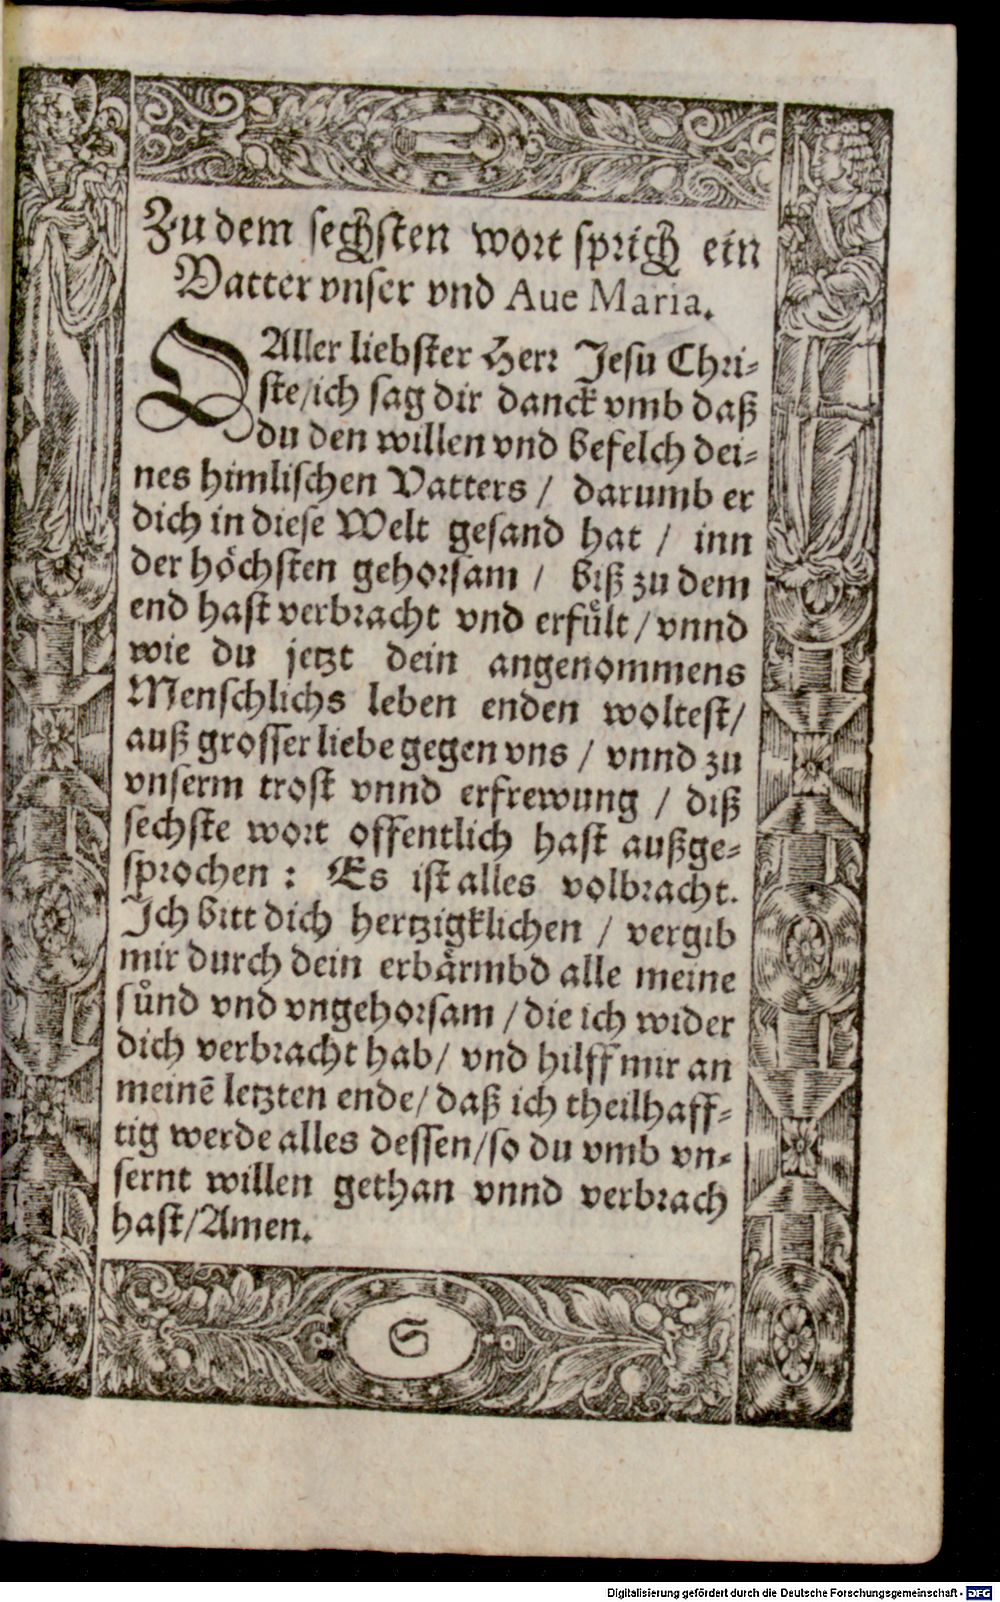 Zu dem sechsten wort sprich ein
Vatter vnser vnd Aue Maria.
O Aller liebster Herr Jesu Chri-
ste/ich sag dir danck vmb daß
du den willen vnd befelch dei-
nes himlischen Vatters / darumb er
dich in diese Welt gesand hat / inn
der hoͤchsten gehorsam / biß zu dem
end hast verbracht vnd erfuͤlt / vnnd
wie du jetzt dein angenommens
Menschlichs leben enden woltest/
auß grosser liebe gegen vns / vnnd zu
vnserm trost vnnd erfrewung / diß
sechste wort offentlich hast außge-
sprochen : Es ist alles volbracht.
Ich bitt dich hertzigklichen / vergib
mir durch dein erbaͤrmbd alle meine
suͤnd vnd vngehorsam / die ich wider
dich verbracht hab/ vnd hilff mir an
meinē letzten ende/ daß ich theilhaff-
tig werde alles dessen/so du vmb vn-
sernt willen gethan vnnd verbrach
hast/Amen.
S
Digitalisierung gefördert durch die Deutsche Forschungsgemeinschaft - DFG